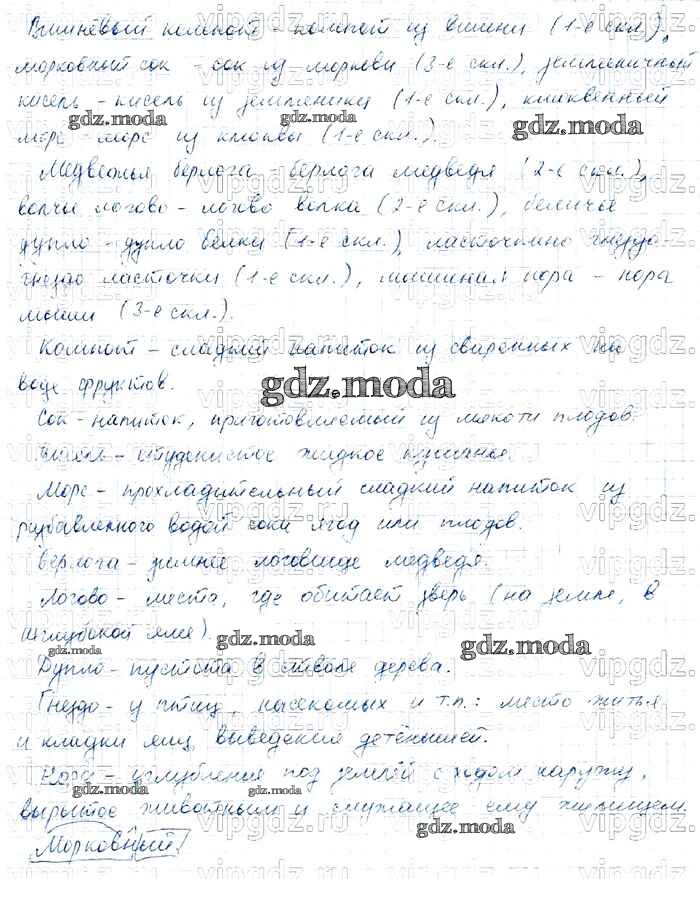 Вишнёвый компот – компот из вишни (1-е скл.),
морковный сок – сок из моркови (3-е скл.), земляничный
кисель – кисель из земляники (1-е скл.), клюквенный
морс – морс из клюквы (1-е скл.).
Медвежья берлога – берлога медведя (2-е скл.),
волчье логово – логово волка (2-е скл.), беличье
дупло – дупло белки (1-е скл.), ласточкино гнездо –
гнездо ласточки (1-е скл.), мышиная нора – нора
мыши (3-е скл.).
Компот – сладкий напиток из сваренных на
воде фруктов.
gdz.moda
Сок – напиток, приготовляемый из мякоти плодов.
Кисель – студенистое жидкое кушанье.
Морс – прохладительный сладкий напиток из
разбавленного водой сока ягод или плодов.
Берлога – зимнее логовище медведя.
Логово – место, где обитает зверь (на земле, в
неглубокой яме).
gdz.moda
Дупло – пустота в стволе дерева.
Гнездо – у птиц, насекомых и т.п.: место житья
и кладки яиц, выведения детёнышей.
Нора – углубление под землёй с ходом наружу,
вырытое животным и служащее ему жилищем.
gdz.moda
Морковный